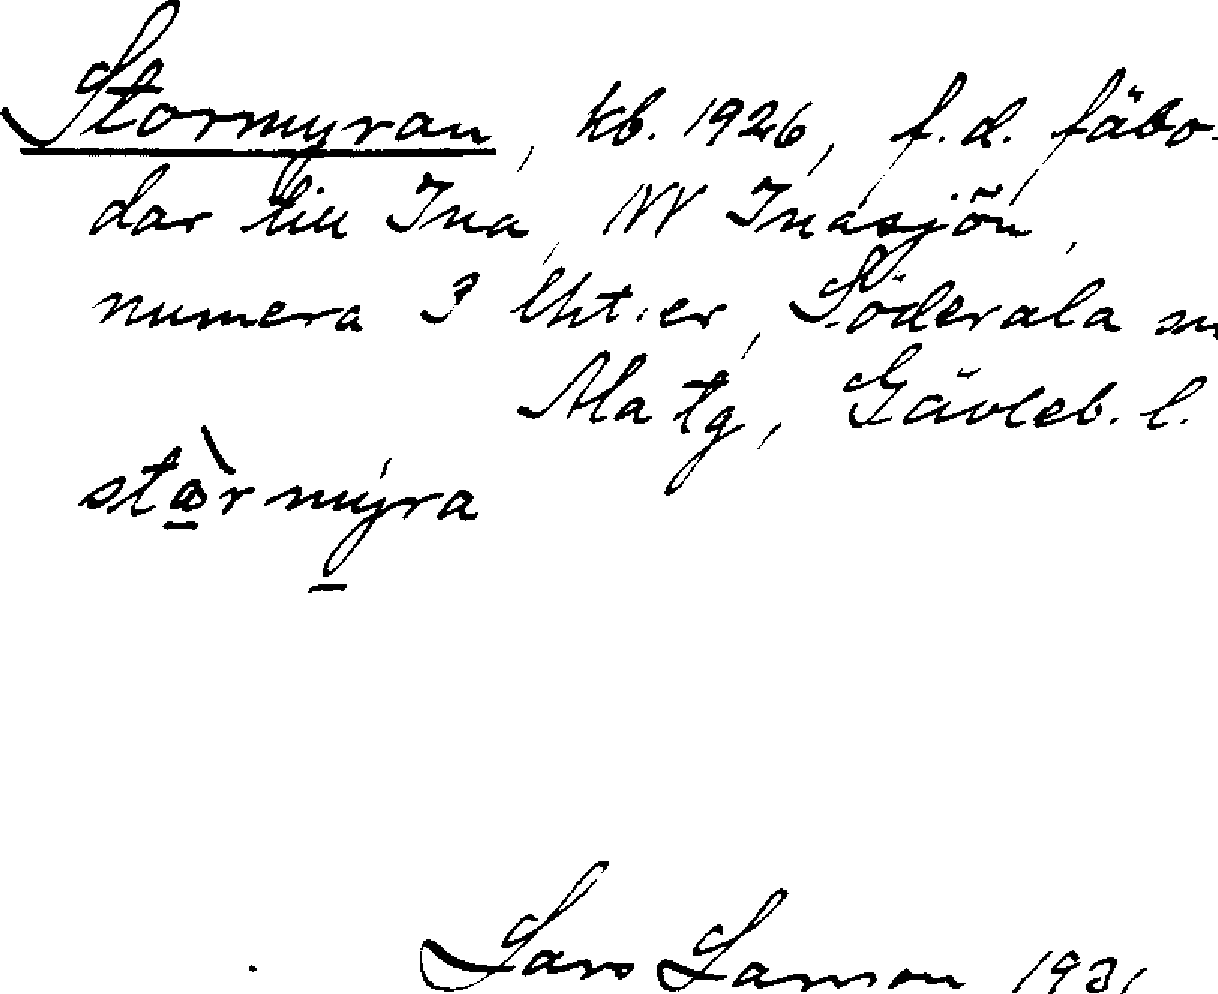 Stormyran, kb. 1926, f.d. fäbo-
dar till Ina, NV Inasjön,
numera 3 lht:er, Söderala sn
Ala tg, Gävleb. l.
stòrmýra
Lars Larsson 1931